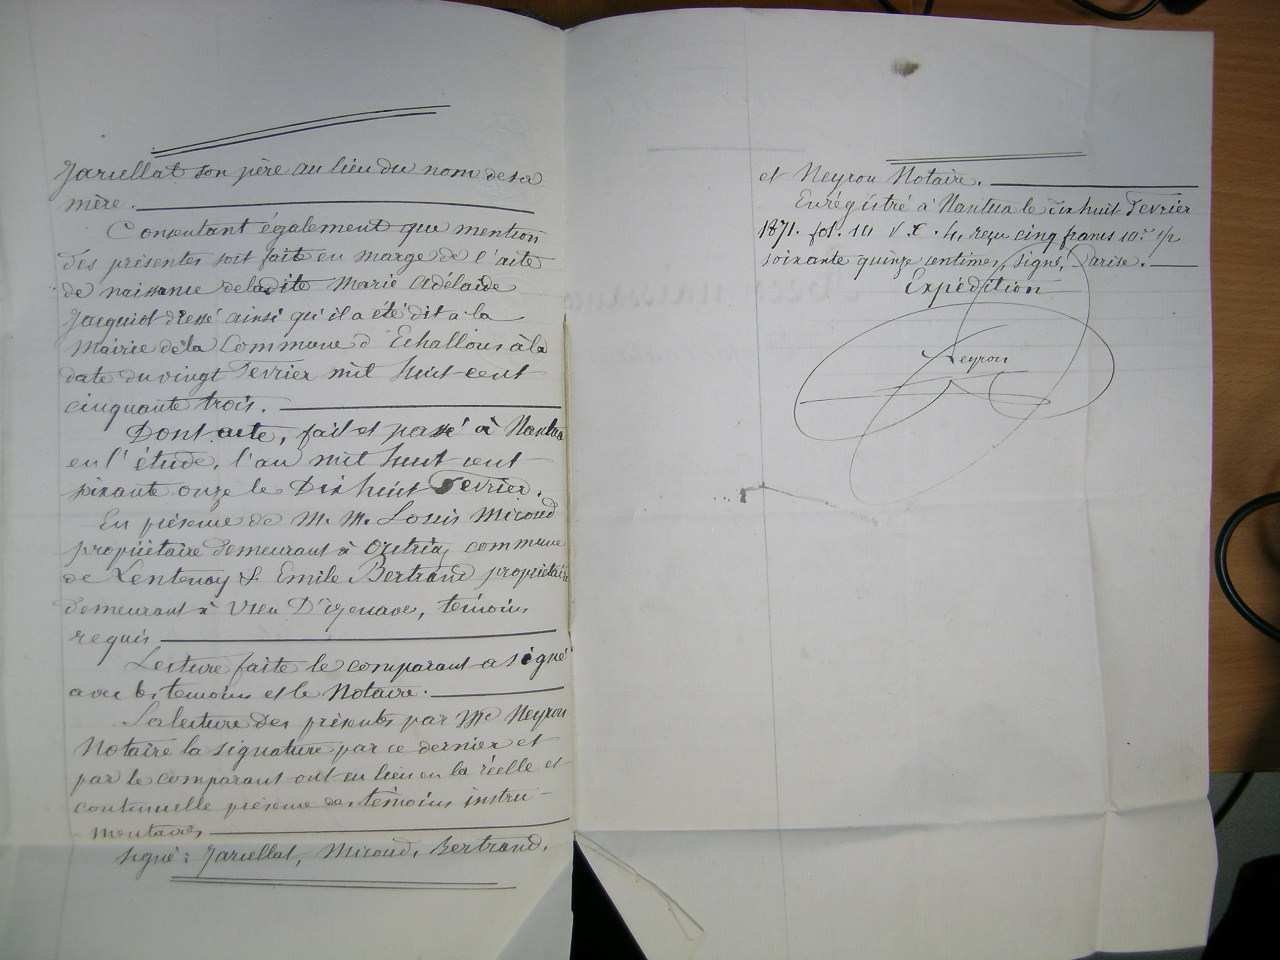 Jarcellat son père au lieu du nom de sa
mère.
Consentant également que mention
des présentes soit faite en marge de l'acte
de naissance de ladite Marie Adélaïde
Jacquiot dressé ainsi qu'il a été dit à la
Mairie de la Commune d'Echallon à la
date du vingt Fevrier mil huit cent
cinquante trois.
Dont acte, fait et passé à Nantua
en l'étude, l'an mil huit cent
soixante onze le Dix huit Fevrier.
En présence de M. M. Louis Miroud
propriétaire demeurant à Outriaz commune
de Lentenay & Emile Bertrand propriétaire
demeurant à Vieu D'Izenave, temoins
requis
Lecture faite le comparant a signé
avec les temoins et le Notaire.
La lecture des présentes par Me Neyron
Notaire la signature par ce dernier et
par le comparant ont eu lieu en la réelle et
continuelle présence des témoins instru-
mentaires
Signé: Jarcellat, Miroud, Bertrand,
et Neyron Notaire.
Enrégistré à Nantua le dix huit Fevrier
1871. fol. 10 V. C. 4, reçu cinq francs 10es 1/2
soixante quinze centimes, signé, Parise.
Expédition
Neyron